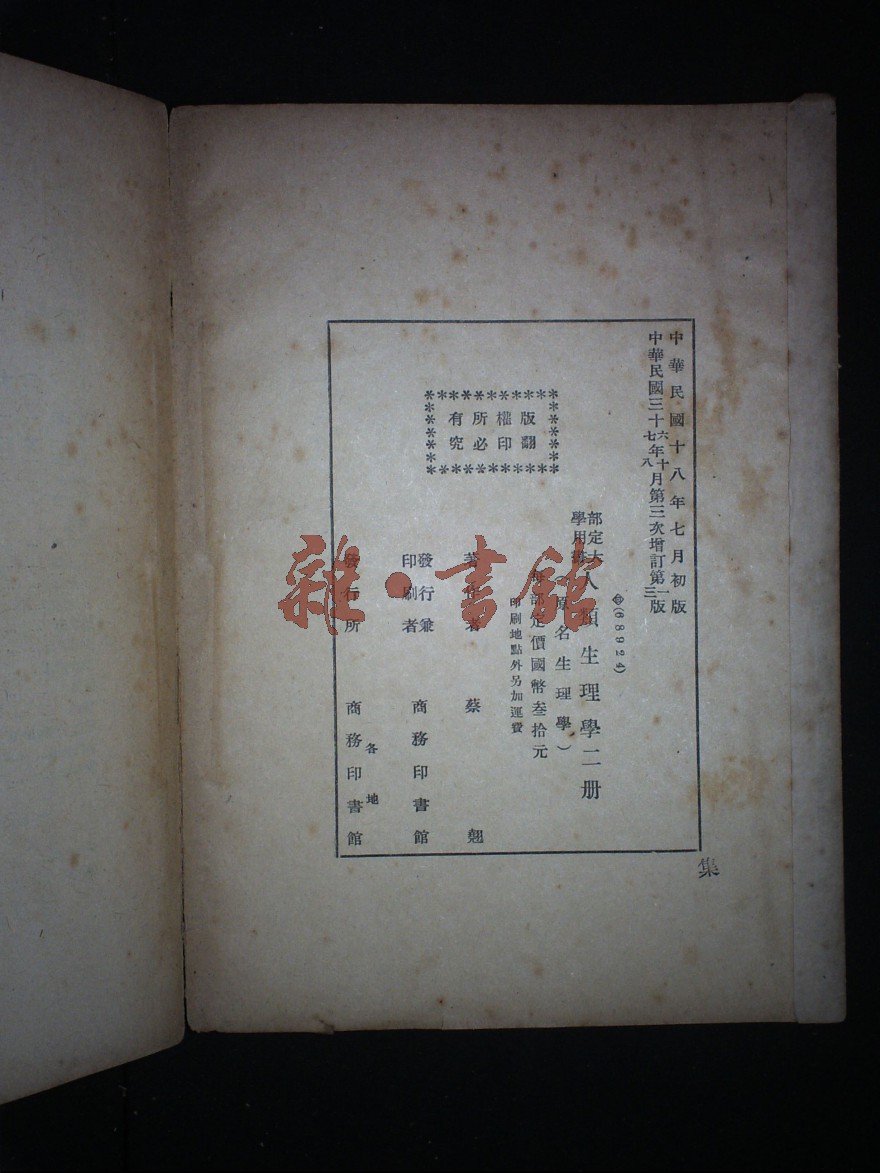 中華民國十八年七月初版
中華民國三十六年十月第三次增訂第一版
七八三
版權所有
翻印必究
(68924)
部定大
學用書
人類生理學二册
原名生理學)
每部定價國幣叁拾元
印刷地點外另加運費
著作者 蔡翹
發行兼
印刷者 商務印書館
各地
發行所 商務印書館
集
雜·書館